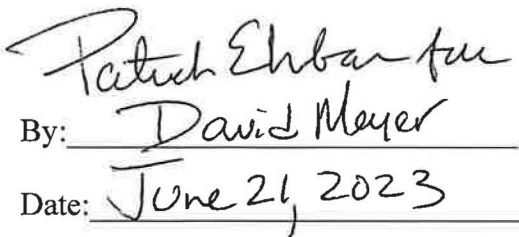 Patrick Ehbar for
By: David Meyer
Date: June 21, 2023